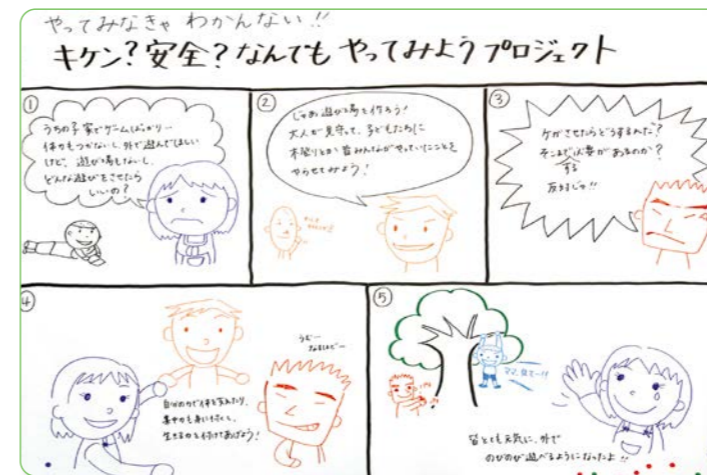 やってみなきゃ わかんない!!
キケン?安全?なんでも やってみようプロジェクト
①
うちの子 家でゲームばっかり…
体力もつかないし、外で遊んでほしい
けど、遊び場もないし、
どんな遊びをさせたら
いいの?
②
じゃあ遊び場を作ろう!
大人が見守って、子どもたちに
木登りとか昔みんながやっていたことを
やらせてみよう!
③
ケガさせたらどうするんだ?
そこまでする必要があるのか?
反対じゃ!!
④
うむー
なるほどー
自分の力で体を支えたり、
集中力も身に付くし、
生きる力を付けてあげよう!
⑤
ママ、見てー!!
皆とても元気に、外で
のびのび遊べるようになったよ!!